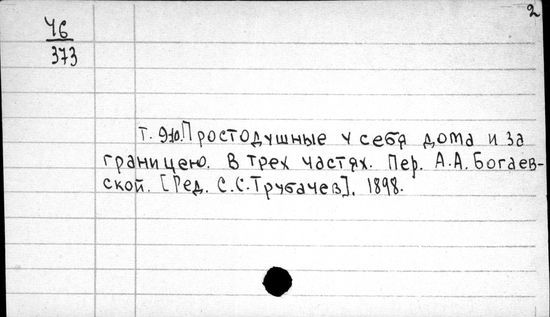 2
Ч6
373
Простодушные у себя дома и за
границею. В трех частях. Пер. А.А.Богаев-
ской. [Ред. С.С.Трубачев]. 1898.